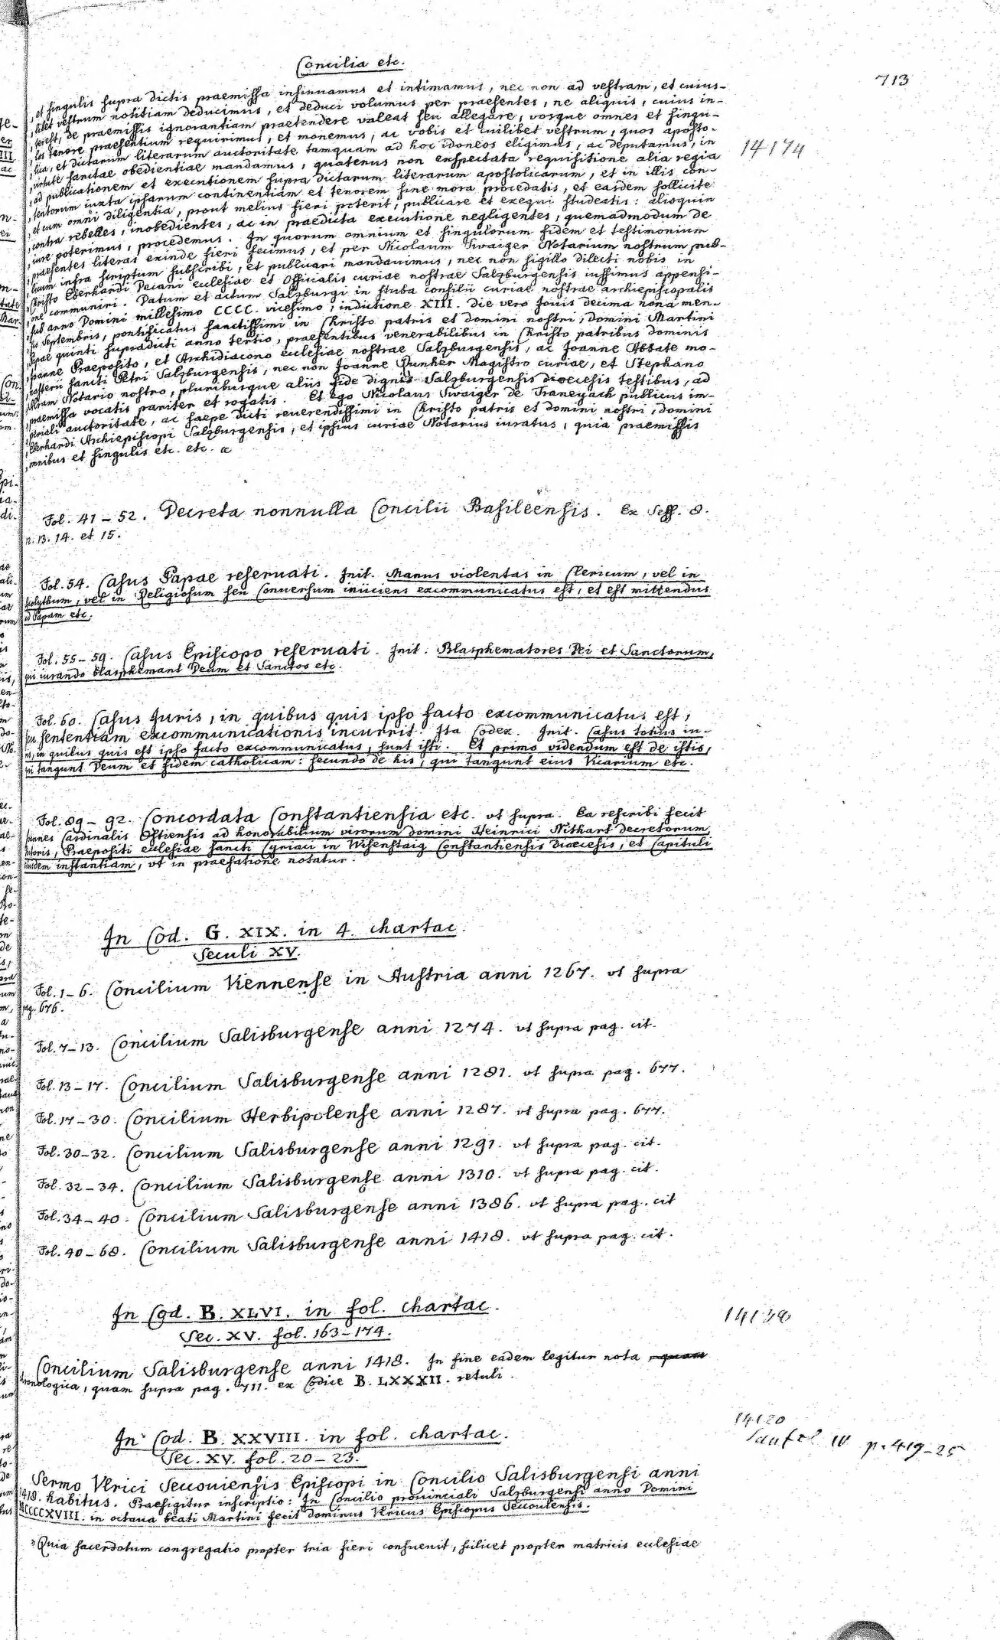 Concilia etc.
713
et singulis supra dictis praemissa insinuamus et intimamus, nec non ad vestram, et cuius-
libet vestrum notitiam deducimus, et deduci volumus per praesentes, ne aliquis, cuius in-
terest, de praemissis ignorantiam praetendere valeat seu allegare, vosque omnes et singu-
los tenore praesentium requirimus, et monemus, ac vobis et cuilibet vestrum, quos aposto-
lica, et dictarum literarum auctoritate tamquam ad hoc idoneos eligimus, ac deputamus, in
14174
virtute sanctae obedientiae mandamus, quatenus non exspectata requisitione alia regia
ad publicationem et executionem supra dictarum literarum apostolicarum, et in illis con-
tentorum iuxta ipsarum continentiam et tenorem sine mora procedatis, et easdem sollicite
et cum omni diligentia, prout melius fieri poterit, publicare et exequi studeatis: alioquin
contra rebelles, inobedientes, ac in praedicta executione negligentes, quemadmodum de
iure poterimus, procedemus. In quorum omnium et singulorum fidem et testimonium
praesentes literas exinde fieri fecimus, et per Nicolaum Swaiger Notarium nostrum pub-
licum infra scriptum subscribi, et publicari mandauimus, nec non sigillo dilecti nobis in
Christo Eberhardi Decani ecclesiae et Officialis curiae nostrae Salzburgensis iussimus appensi-
one communiri. Datum et actum Salzburgi in stuba consilii curiae nostrae archiepiscopalis
sub anno Domini millesimo CCCC. vicesimo, indictione XIII. die vero Jouis decima nona men-
sis Septembris, pontificatus sanctissimi in Christo patris et domini nostri, domini Martini
Papae quinti supradicti anno tertio, praesentibus venerabilibus in Christo patribus dominis
Joanne Praeposito, et Archidiacono ecclesiae nostrae Salzburgensis, ac Joanne Abbate mo-
nasterii sancti Petri Salzburgensis, nec non Joanne Dunker Magistro curiae, et Stephano
Notario nostro, pluribusque aliis fide dignis Salzburgensis dioecesis testibus, ad
praemissa vocatis pariter et rogatis. Et ego Nicolaus Swaiger de Franeyach publicus im-
periali auctoritate, ac saepe dicti reuerendissimo in Christo patris et domini nostri, domini
Eberhardi Archiepiscopi Salzburgensis, et ipsius curiae Notarius iuratus, quia praemissis
omnibus et singulis etc. etc.
Fol. 41 – 52. Decreta nonnulla Concilii Basileensis. Ex Sess. 8.
n. 13. 14. et 15.
Fol. 54. Casus Papae reseruati. Init. Manus violentas in Clericum, vel in
vel in Religiosum seu Conuersum iniiciens excommunicatus est, et est mittendus
ad Papam etc.
Fol. 55 – 59. Casus Episcopo reseruati. Init. Blasphematores Dei et Sanctorum,
qui iurando blasphemant Deum et Sanctos etc.
Fol. 60. Casus Juris, in quibus quis ipso facto excommunicatus est,
seu sententiam excommunicationis incurrit. Ita Codex. Init. Casus totius iu-
ris, in quibus quis est ipso facto excommunicatus, sunt isti. Et primo videndum est de istis,
qui tangunt Deum et fidem catholicam: secundo de his, qui tangunt eius Vicarium etc.
Fol. 89 – 92. Concordata Constantiensia etc. vt supra. Ea rescribi fecit
Joannes Cardinalis Ostiensis ad honorabilium virorum domini Heinrici Nithart decretorum
doctoris, Praepositi ecclesiae sancti Cyriaci in Wisenstaig Constantiensis Dioecesis, et Capituli
eiusdem instantiam, vt in praefatione notatur.
In Cod. G. XIX. in 4. chartac.
Seculi XV.
Fol. 1 – 6. Concilium Viennense in Austria anni 1267. vt supra
pag. 676.
Fol. 7 – 13. Concilium Salisburgense anni 1274. vt supra pag. cit.
Fol. 13 – 17. Concilium Salisburgense anni 1281. vt supra pag. 677.
Fol. 17 – 30. Concilium Herbipolense anni 1287. vt supra pag. 677.
Fol. 30 – 32. Concilium Salisburgense anni 1291. vt supra pag. cit.
Fol. 32 – 34. Concilium Salisburgense anni 1310. vt supra pag. cit.
Fol. 34 – 40. Concilium Salisburgense anni 1386. vt supra pag. cit
Fol. 40 – 68. Concilium Salisburgense anni 1418. vt supra pag. cit.
In Cod. B. XLVI. in fol. chartac.
14138
Sec. XV. fol. 163 – 174.
Concilium Salisburgense anni 1418. In fine eadem legitur nota
chronologica, quam supra pag. 711. ex Codice B. LXXXII. retuli.
In Cod. B. XXVIII. in fol. chartac.
14120
Sec. XV. fol. 20 – 23.
IV p. 419-25
Sermo Vlrici Seccouiensis Episcopi in Concilio Salisburgensi anni
1418. habitus. Praefigitur inscriptio: In Concilio prouinciali Salzburgensi anno Domini
MCCCCXVIII. in octaua beati Martini fecit dominus Vlricus Episcopus Seccouiensis.
Quia sacerdotum congregatio propter tria fieri consueuit, scilicet propter matricis ecclesiae